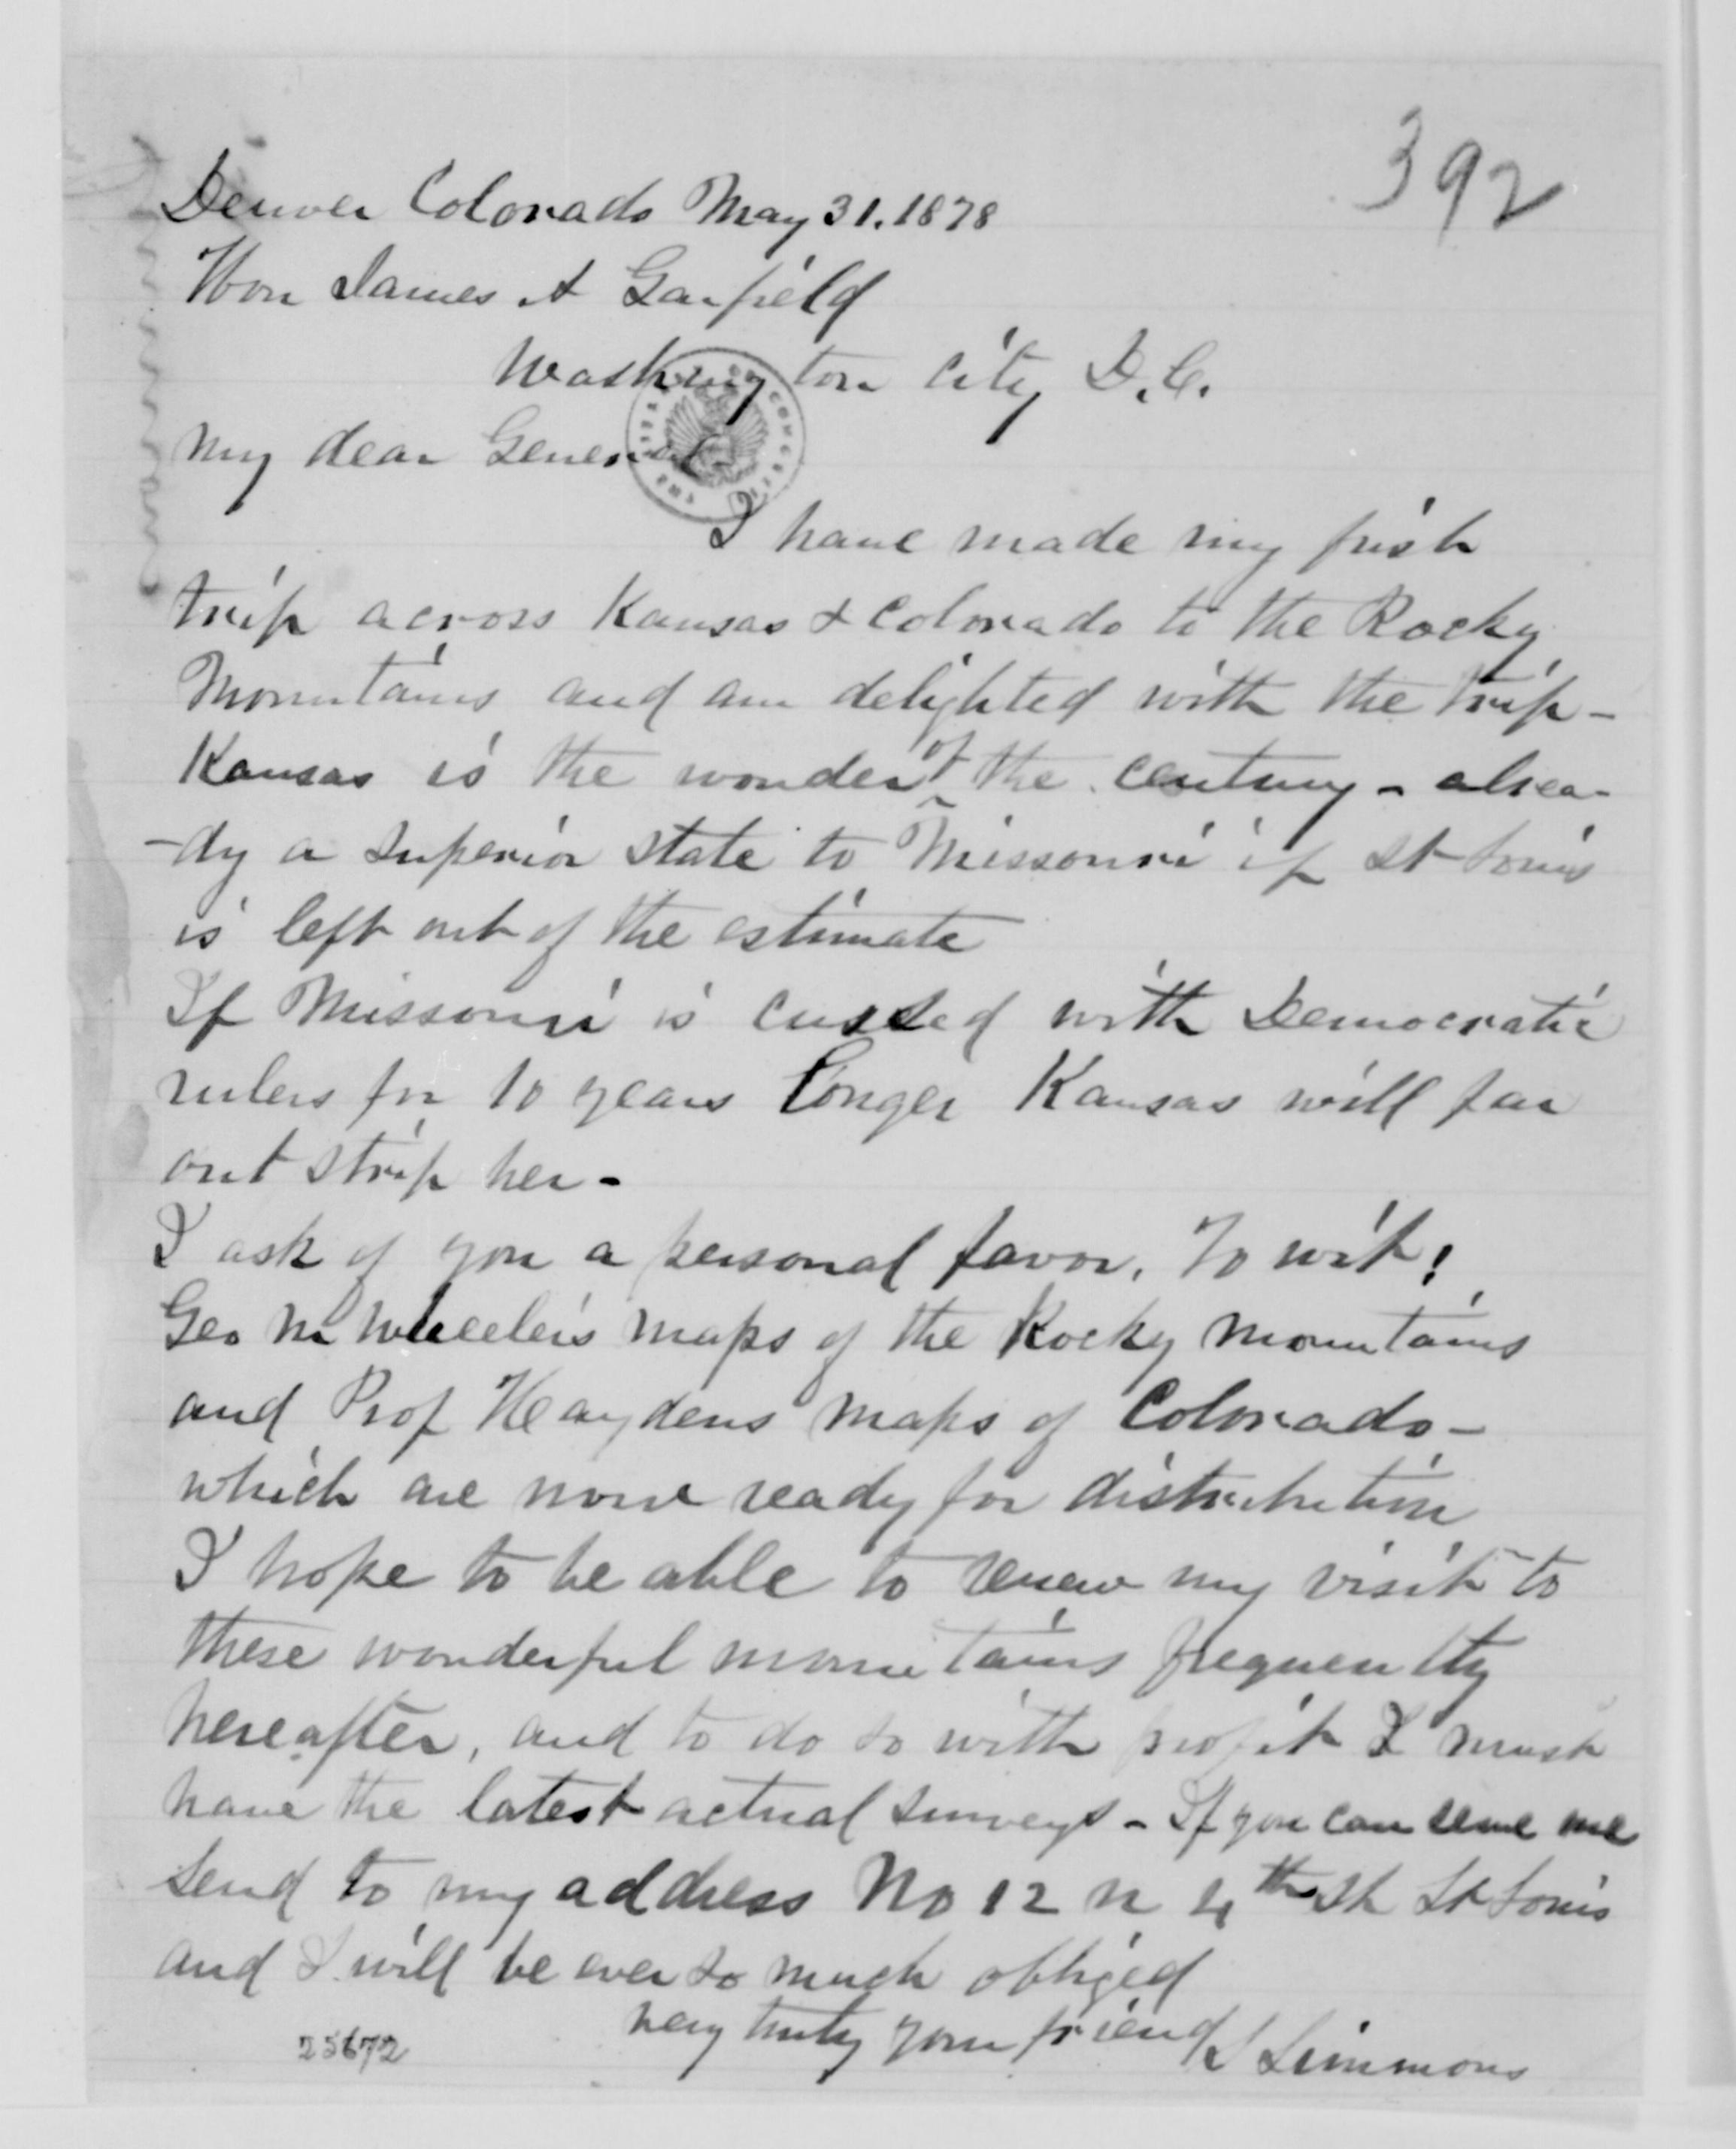 392
Denver Colorado May 31. 1878
Hon James A Garfield
Washington City D.C.
My dear General
I have made my first
trip across Kansas & Colorado to the Rocky
Mountains and am delighted with the trip -
Kansas is the wonder of the century - alrea-
-dy a superior state to Missouri if St Louis
is left out of the estimate
If Missouri is cussed with Democratic
rulers for 10 years longer Kansas will far
out strip her -
I ask of you a personal favor, To wit:
Geo M Wheeler's maps of the Rocky Mountains
and Prof Haydens maps of Colorado -
which are now ready for distribution
I hope to be able to renew my visit to
these wonderful mountains frequently
hereafter, and to do so with profit I must
have the latest actual surveys - If you can serve me
send to my address No 12 N 4th St St Louis
and I will be ever so much obliged
very truly your friend
S Simmons
25672